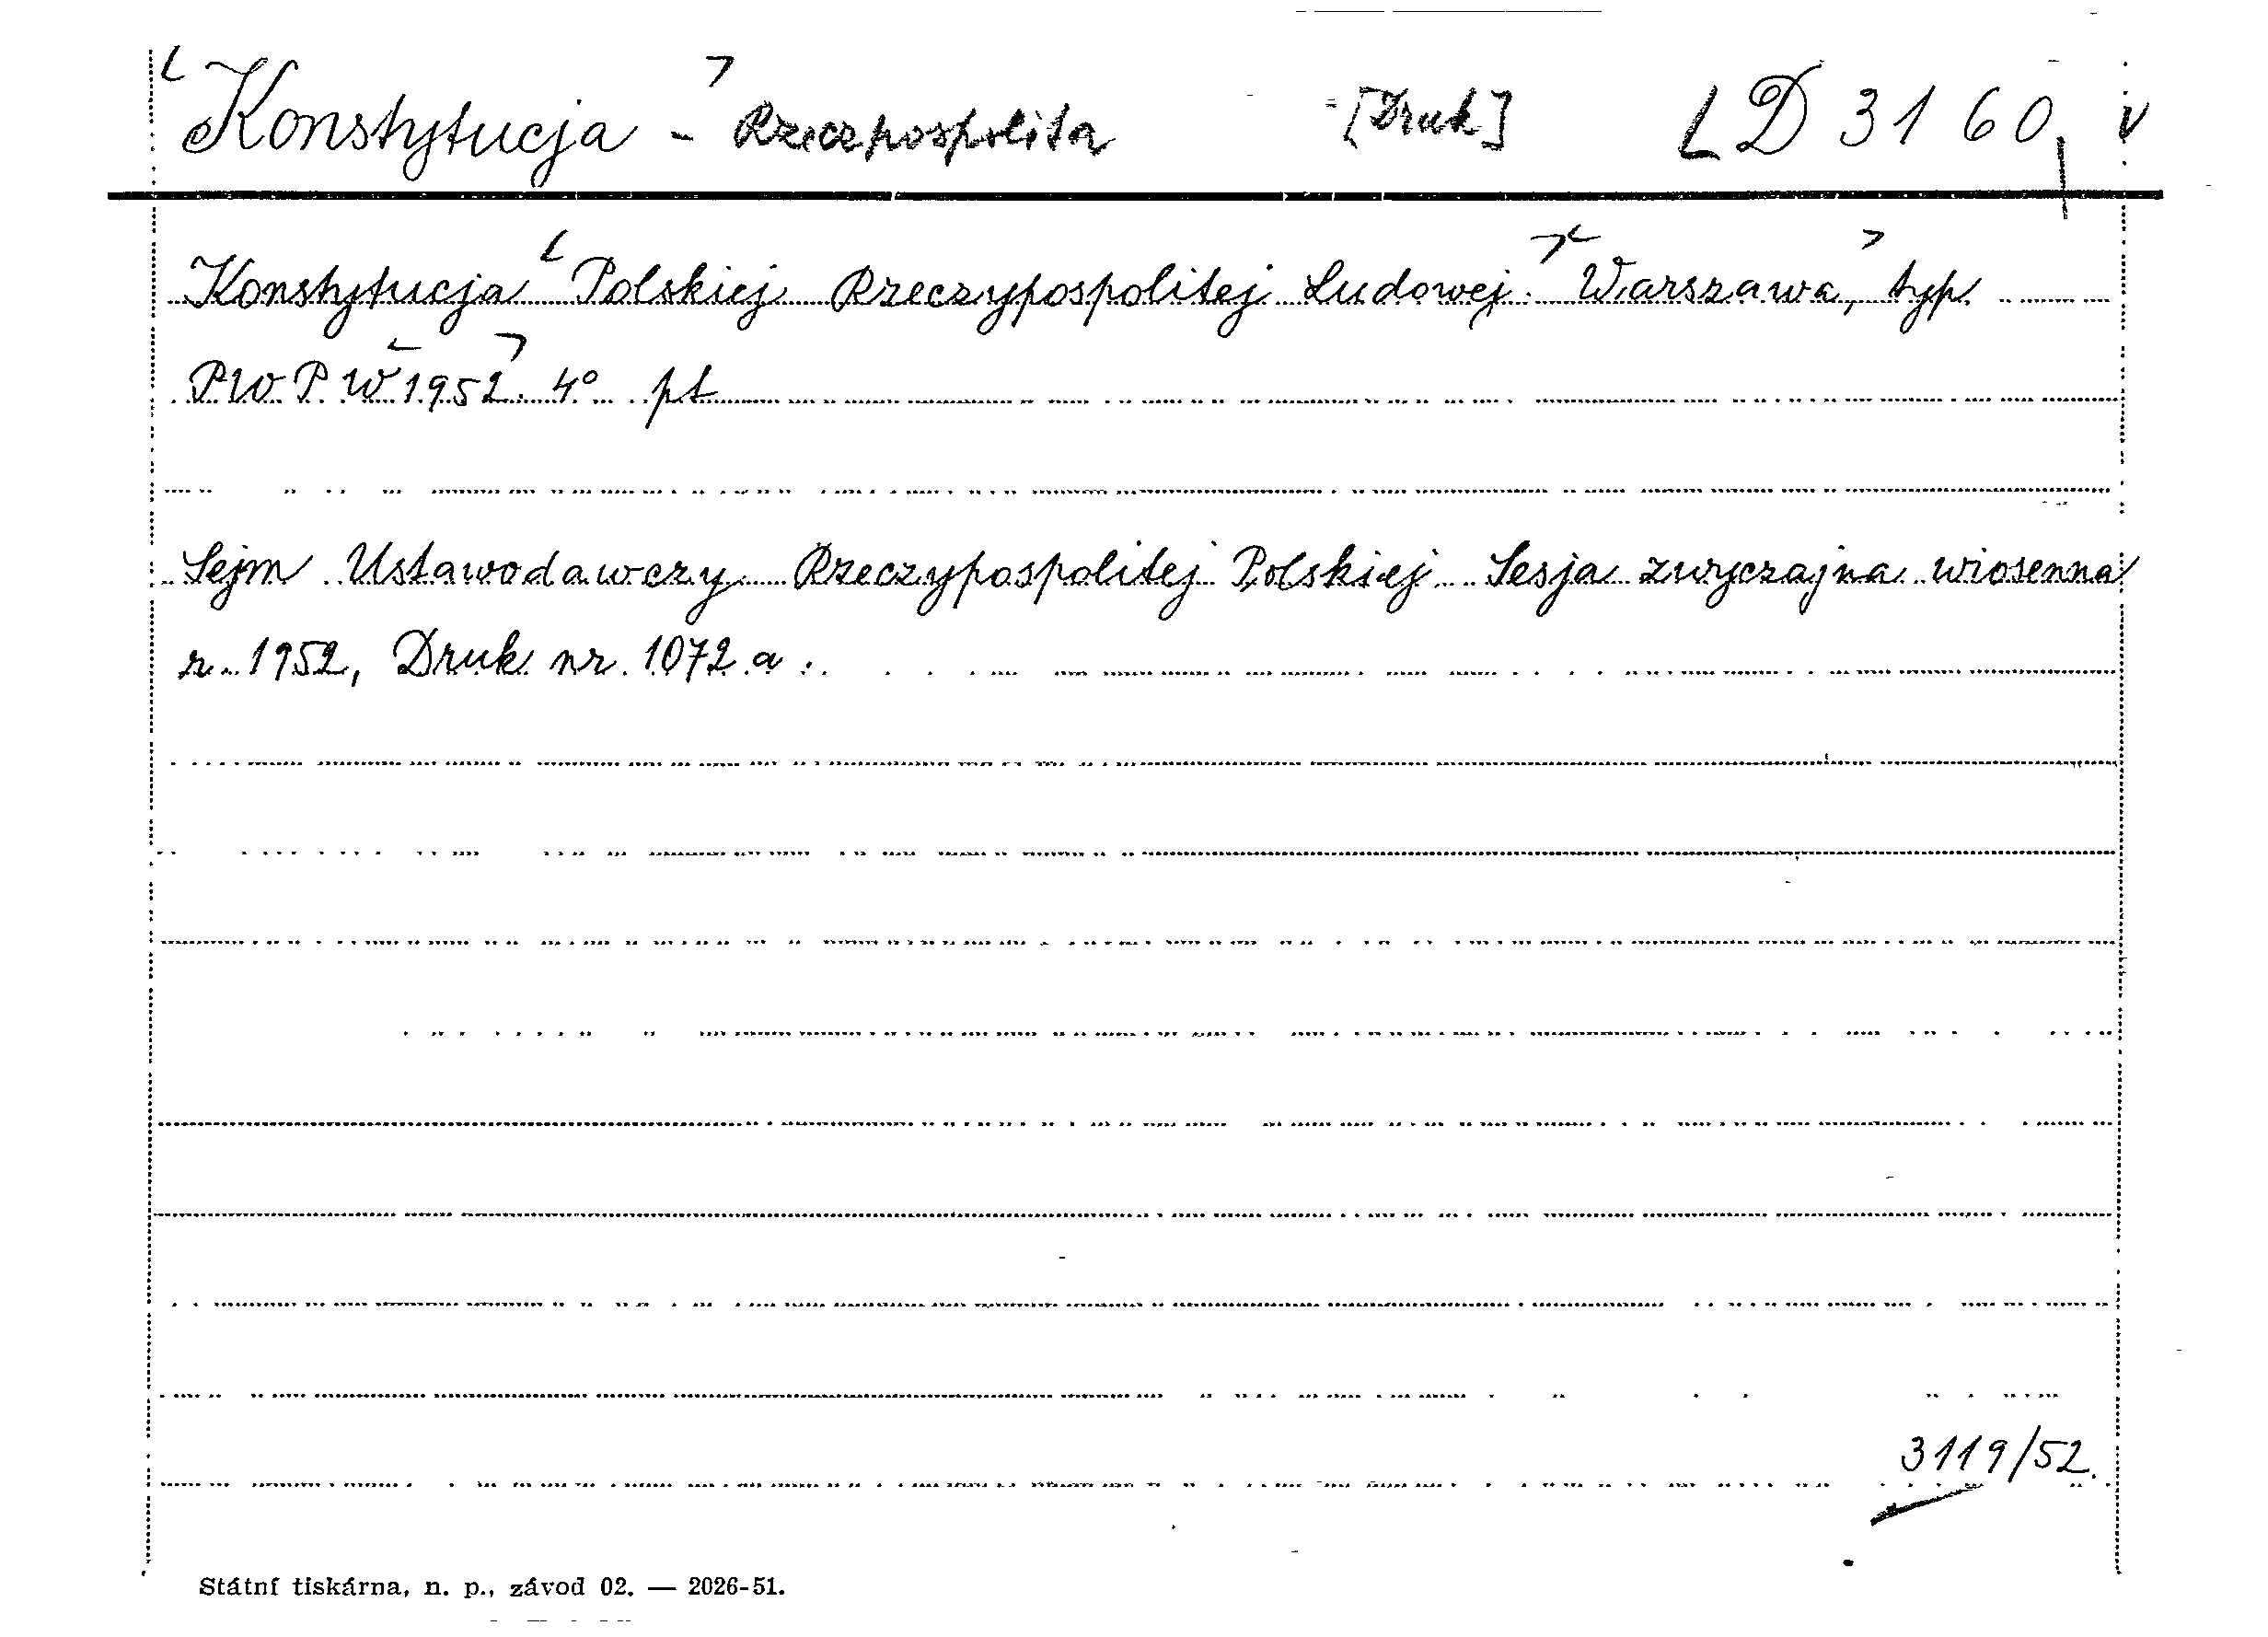 Konstytucja - Rzeczpospolita [Druk] LD 3160
Konstytucja Polskiej Rzeczypospolitej Ludowej. Warszawa, typ.
PWPW 1952. 4° pt
Sejm Ustawodawczy Rzeczypospolitej Polskiej Sesja zwyczajna wiosenna
r. 1952, Druk nr. 1072 a.
3119/52.
Státní tiskárna, n. p., závod 02. — 2026-51.